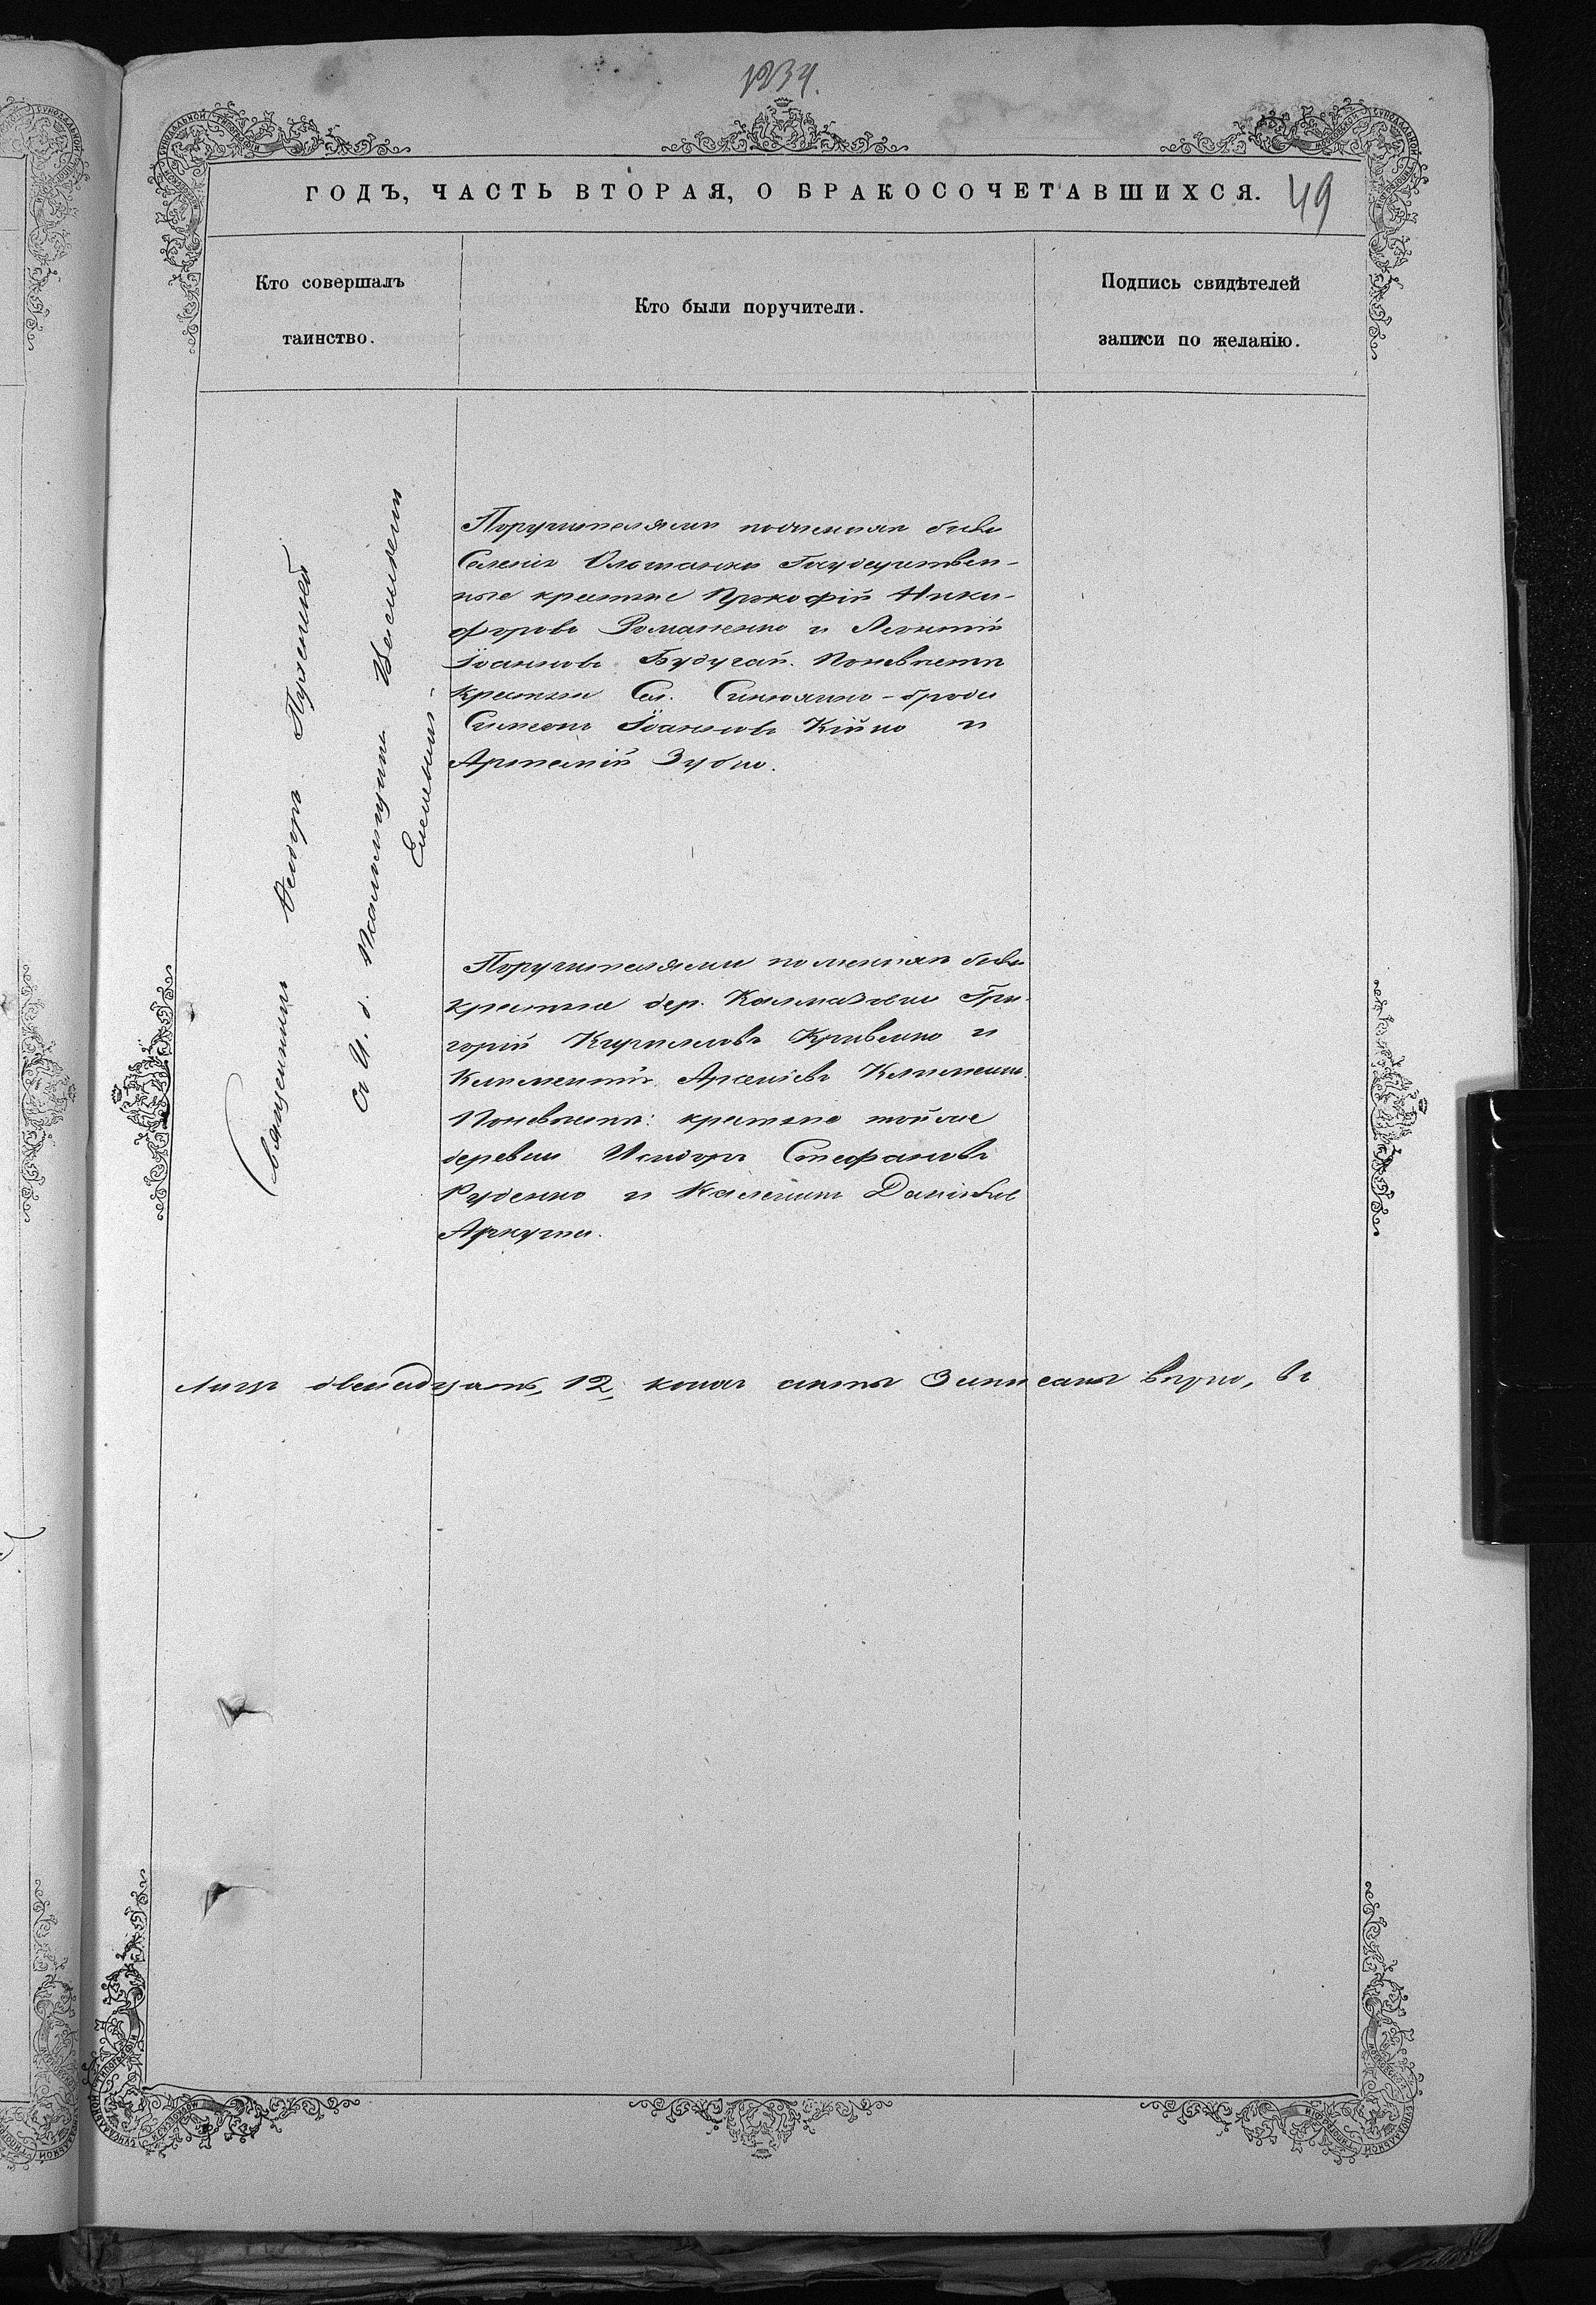 1234.
ГОДЪ, ЧАСТЬ ВТОРАЯ, О БРАКОСОЧЕТАВШИХСЯ.
49
Кто совершалъ
таинство.
Кто были поручители.
Подпись свидѣтелей
записи по желанію.
Священникъ Ѳеодоръ
съ И. д. Псаломщика Василіемъ
Поручителями по женихѣ были
Селенія Государствен-
ные крестьяне Прокофій Ники-
форовъ Романенко и Леонтій
Іоанновъ Будугай. По невѣстѣ
крестьяне Сел. Синюхино-брода
Симеонъ Іоанновъ Кійко и
Артемій Зубко.
Поручителями по женихѣ были
крестьяне дер. Калмазовой Гри-
горій Кирилловъ Кривенко и
Климентій Арсеніевъ
По невѣстѣ: крестьяне той же
деревни Исидоръ Стефановъ
Руденко и Каленикъ Даніиловъ
двенадцать, 12, записаны вѣрно, въ